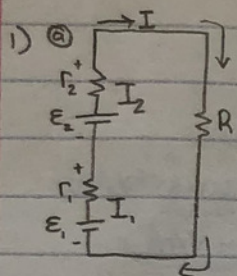 1) ⓐ → I
+
r₂ I₂
ε₂ R
-
+
r₁ I₁
ε₁
-